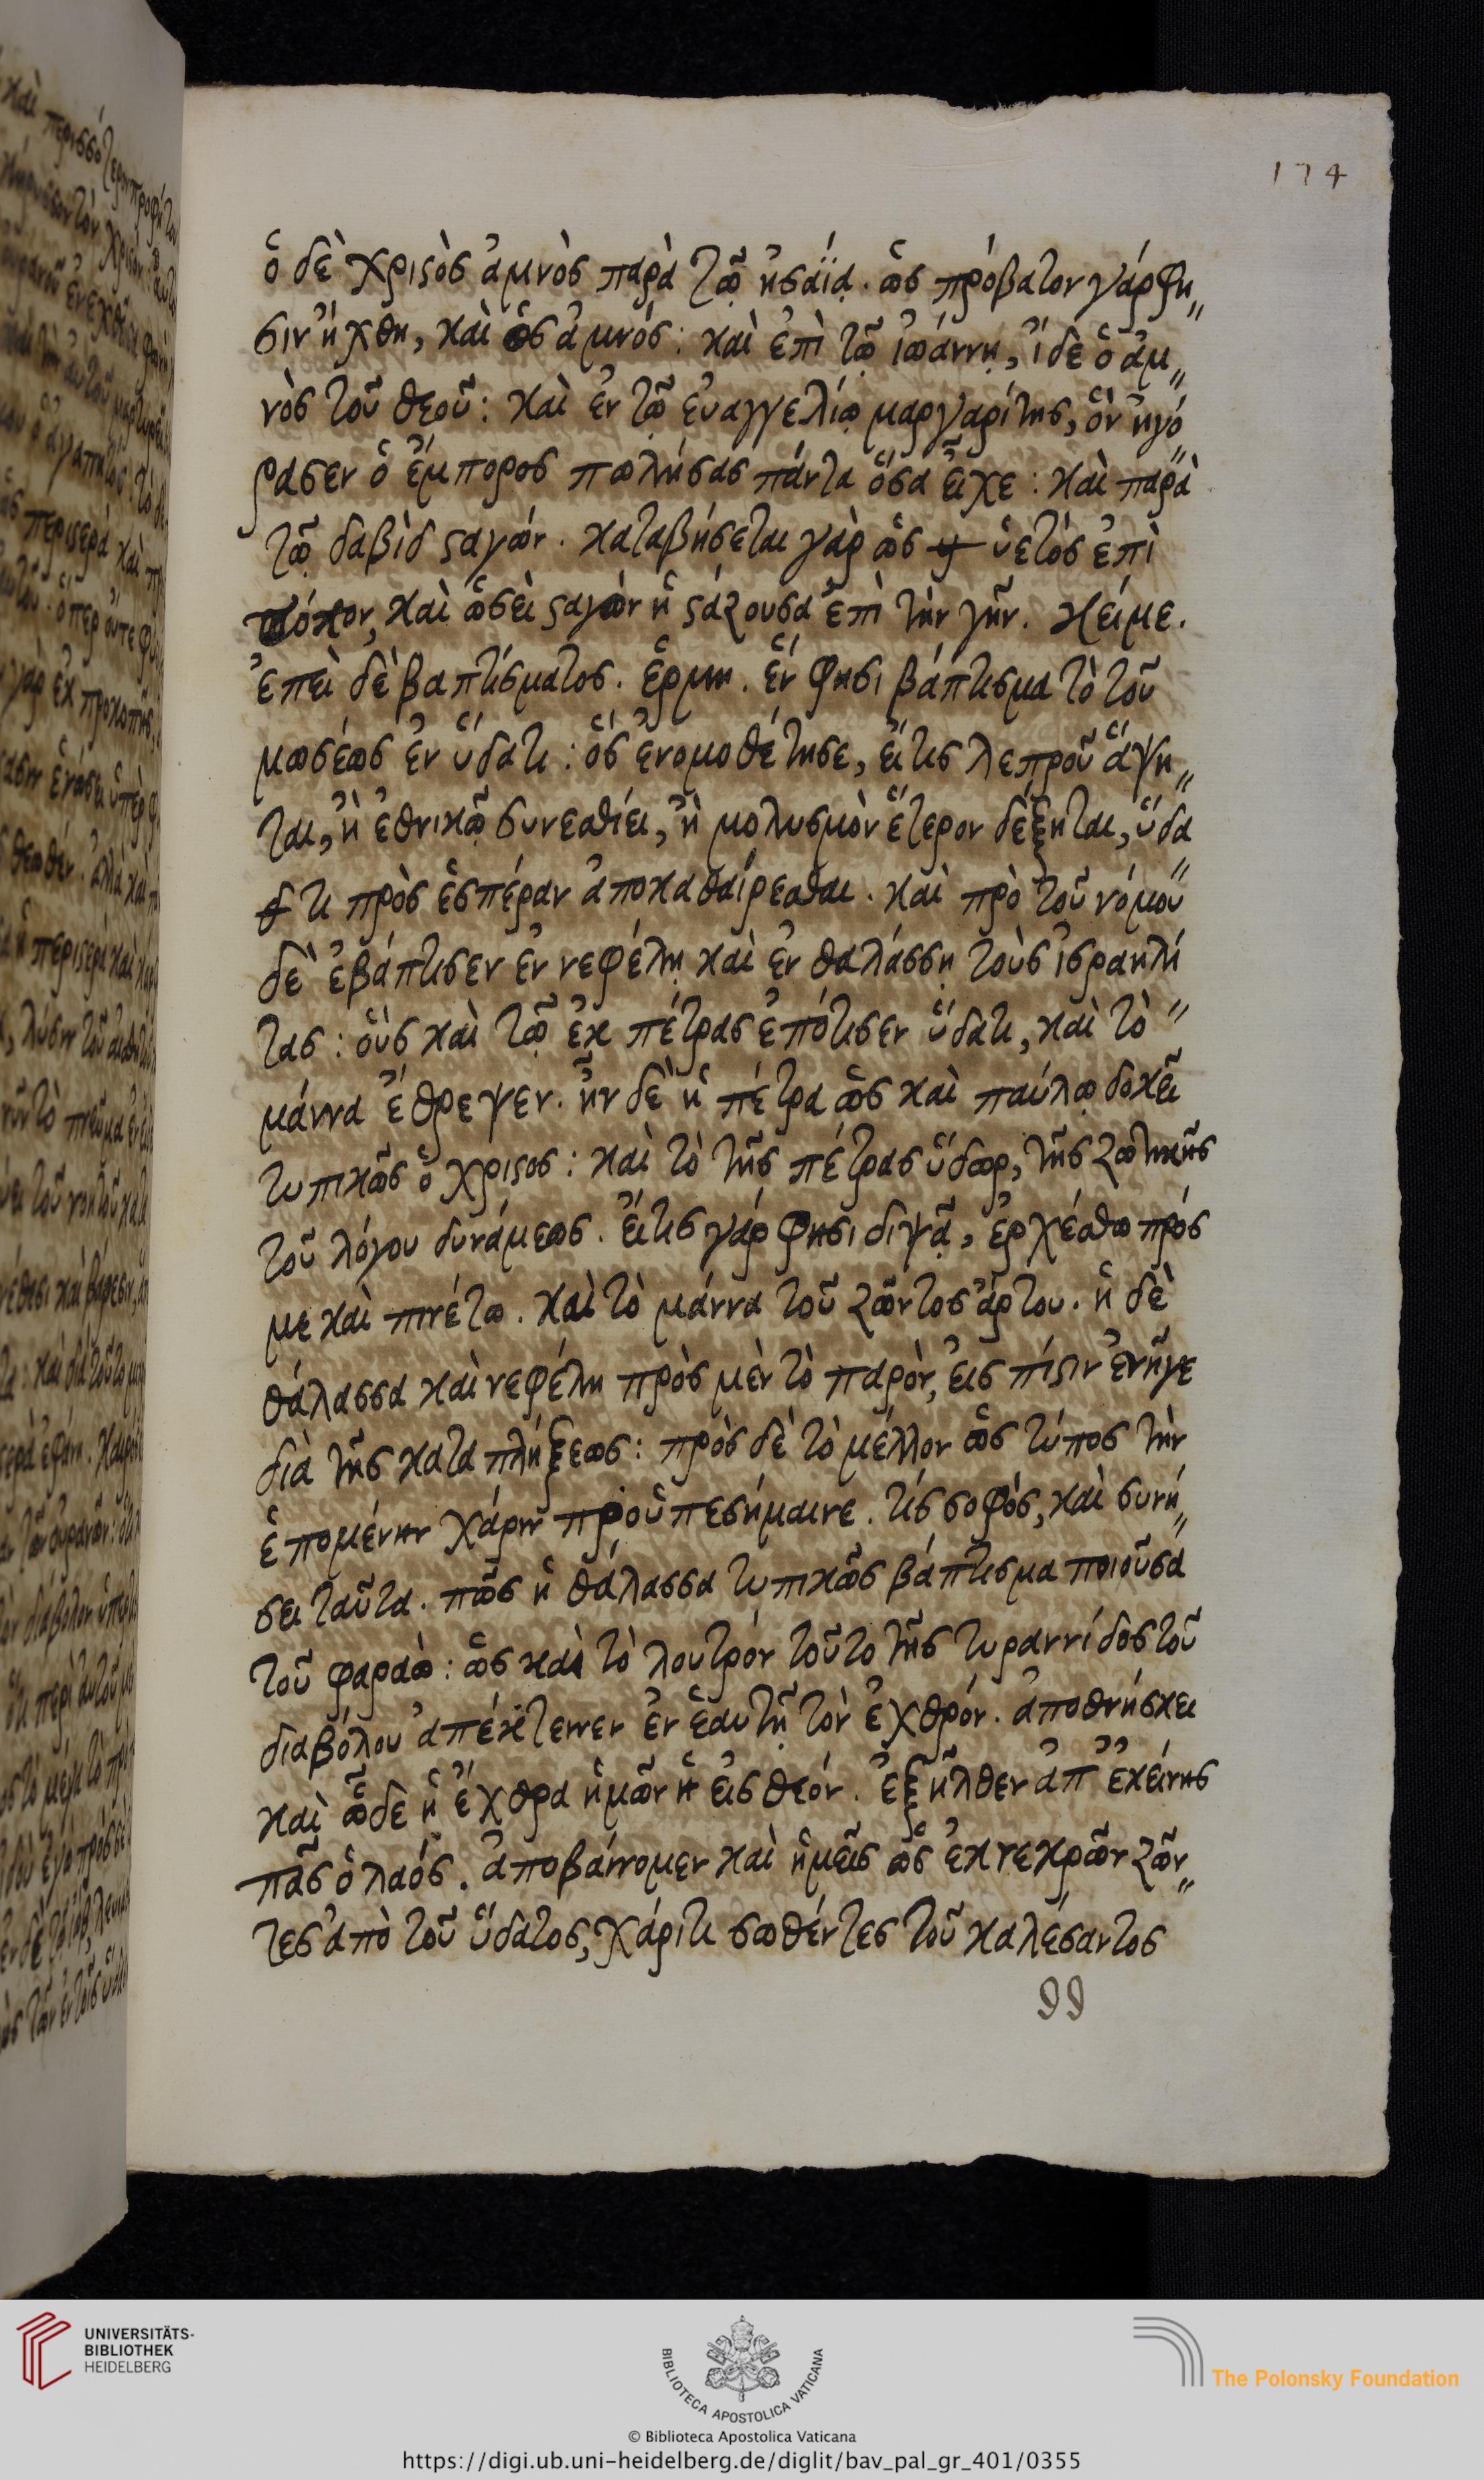 174
ὁ δὲ χριστὸς ἀμνὸς παρὰ τῷ ἠσαΐᾳ. ὡς πρόβατον γάρ φη
σιν ἤχθη, καὶ ὡς ἀμνός: καὶ ἐπὶ τῷ ἰωάννῃ, ἴδε ὁ ἀμ
νὸς τοῦ θεοῦ: καὶ ἐν τῷ ἐυαγγελίῳ μαργαρίτης, ὃν ἠγό
ρασεν ὁ ἔμπορος πωλήσας πάντα ὅσα εἶχε: καὶ παρὰ
τῷ δαβὶδ σταγών. καταβήσεται γὰρ ὡς ὑετὸς ἐπὶ
πόκον, καὶ ὡσεὶ σταγὼν ἡ στάζουσα ἐπὶ τὴν γῆν. κείμε.
ἐπεὶ δὲ βαπτίσματος. ἑρμη. ἕν φησι βάπτισμα τὸ τοῦ
μωσέως ἐν ὕδατι: ὃς ἐνομοθέτησε, εἴτις λεπροῦ ἅψη
ται, ἢ ἐθνικῷ συνεσθίει, ἢ μολυσμὸν ἕτερον δέξηται, ὕδα
τι πρὸς ἑσπέραν ἀποκαθαίρεσθαι. καὶ πρὸ τοῦ νόμου
δὲ ἐβάπτισεν ἐν νεφέλῃ καὶ ἐν θαλάσσῃ τοὺς ἰσραηλί
τας: οὓς καὶ τῷ ἐκ πέτρας ἐπότισεν ὕδατι, καὶ τὸ
μάννα ἔθρεψεν. ἦν δὲ ἡ πέτρα ὡς καὶ παύλῳ δοκεῖ
τυπικῶς ὁ χριστος: καὶ τὸ τῆς πέτρας ὕδωρ, τῆς ζωτικῆς
τοῦ λόγου δυνάμεως. εἴτις γάρ φησι διψᾷ, ἐρχέσθω πρός
με καὶ πινέτω. καὶ τὸ μάννα τοῦ ζῶντος ἄρτου. ἡ δὲ
θάλασσα καὶ νεφέλη πρὸς μὲν τὸ παρὸν, εἰς πίστιν ἐνῆγε
διὰ τῆς καταπλήξεως: πρὸς δὲ τὸ μέλλον ὡς τύπος τὴν
ἑπομένην χάριν προὐπεσήμαινε. τίς σοφὸς, καὶ συνή
σει ταῦτα. πῶς ἡ θάλασσα τυπικῶς βάπτισμα ποιοῦσα
τοῦ φαραὼ: ὡς καὶ τὸ λουτρόν τοῦτο τῆς τυραννίδος τοῦ
διαβόλου ἀπέκτεινεν ἐν ἑαυτῇ τὸν ἐχθρόν. ἀποθνήσκει
καὶ ὧδε ἡ ἔχθρα ἡμῶν ἡ εἰς θεόν. ἐξῆλθεν ἀπ ἐκείνης
πᾶς ὁ λαός. ἀποβαίνομεν καὶ ἡμεῖς ὡς ἐκ νεκρῶν ζῶν
τες ἀπὸ τοῦ ὕδατος, χάριτι σωθέντες τοῦ καλέσαντος
99
UNIVERSITÄTS-
BIBLIOTHEK
HEIDELBERG
BIBLIOTECA APOSTOLICA VATICANA
The Polonsky Foundation
© Biblioteca Apostolica Vaticana
https://digi.ub.uni-heidelberg.de/diglit/bav_pal_gr_401/0355